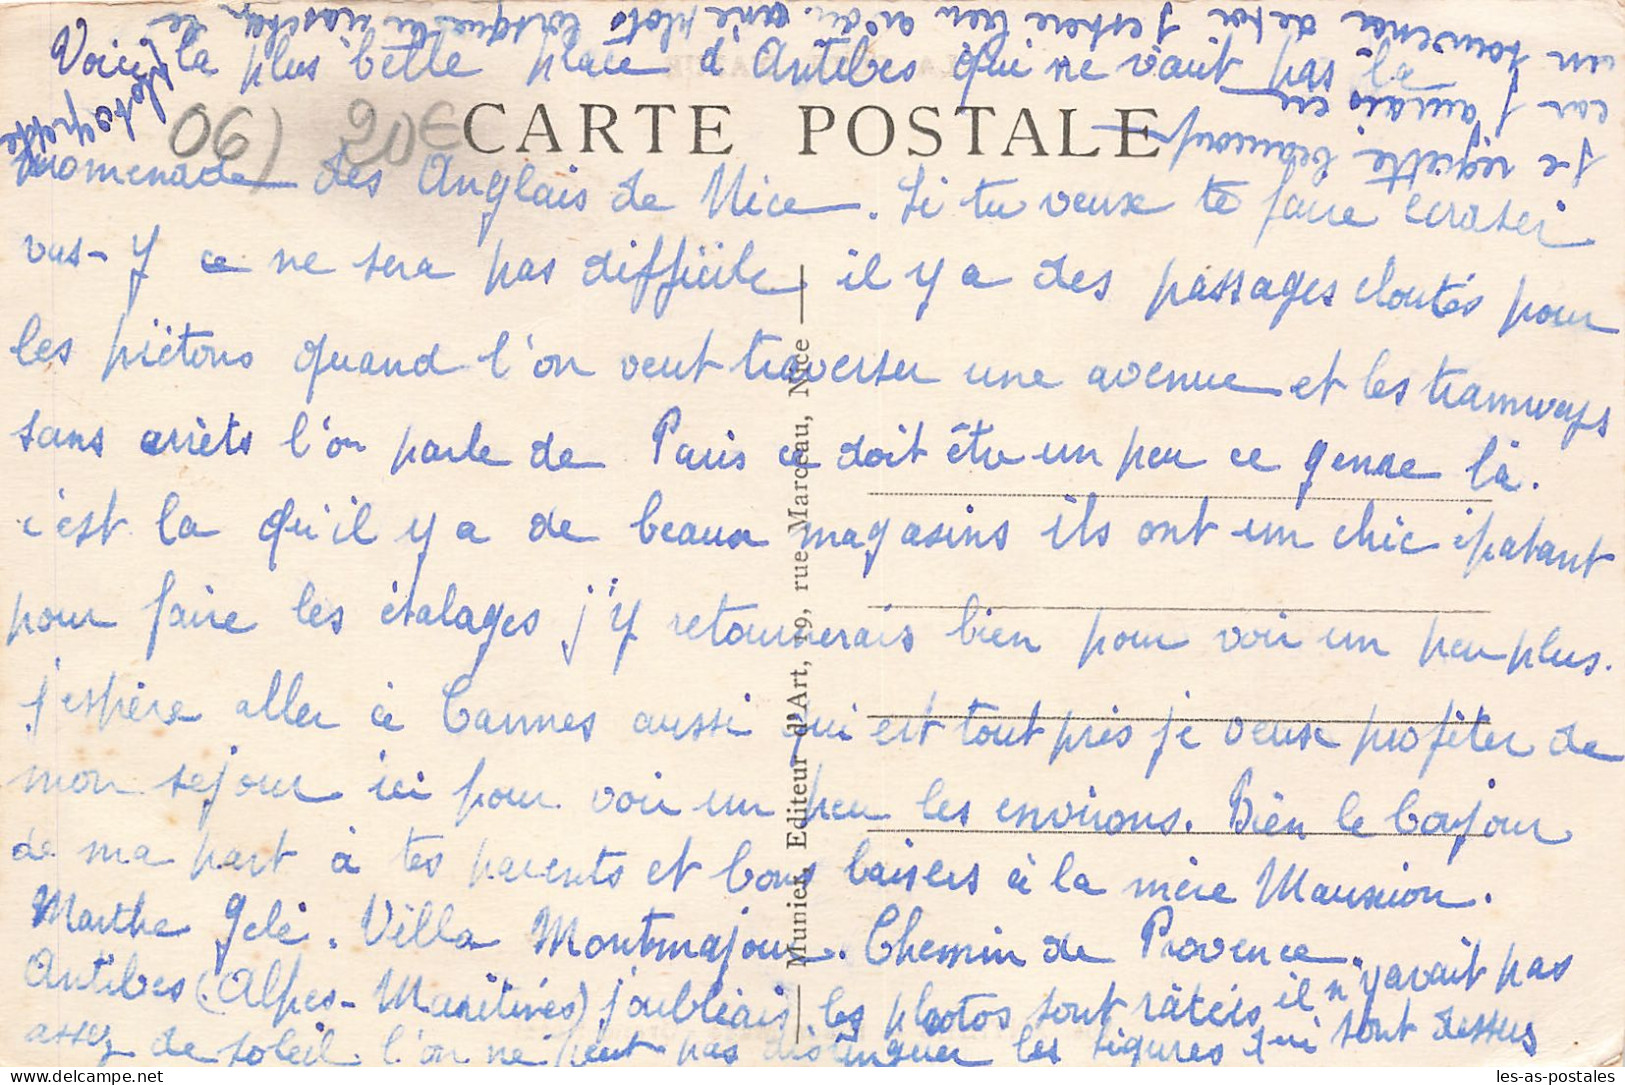 Voici la plus belle place d'Antibes qui ne vaut pas la
06) 20€
CARTE POSTALE
promenade des Anglais de Nice. Si tu veux te faire écraser
vas-y ce ne sera pas difficile il y a des passages cloutés pour
les piétons quand l'on veut traverser une avenue et les tramways
sans arrêts l'on parle de Paris ce doit être un peu ce genre là.
c'est la qu'il y a de beaux magasins ils ont un chic épatant
pour faire les étalages j'y retournerais bien pour voir un peu plus.
j'espère aller à Cannes aussi qui est tout près je veux profiter de
mon séjour ici pour voir un peu les environs. Bien le bonjour
de ma part à tes parents et bons baisers à la mère
Marthe Gelé. Villa Montmajour. Chemin de Provence.
Antibes (Alpes-Maritimes) j'oubliais les photos sont ratées il n'y avait pas
assez de soleil l'on ne peut pas distinguer les figures qui sont dessus
je regrette beaucoup
car j'aurais eu
un souvenir de toi j'espère bien avoir une photo lorsque tu iras chez le
photographe
Munier, Editeur d'Art, 19, rue Marceau, Nice
les-as-postales